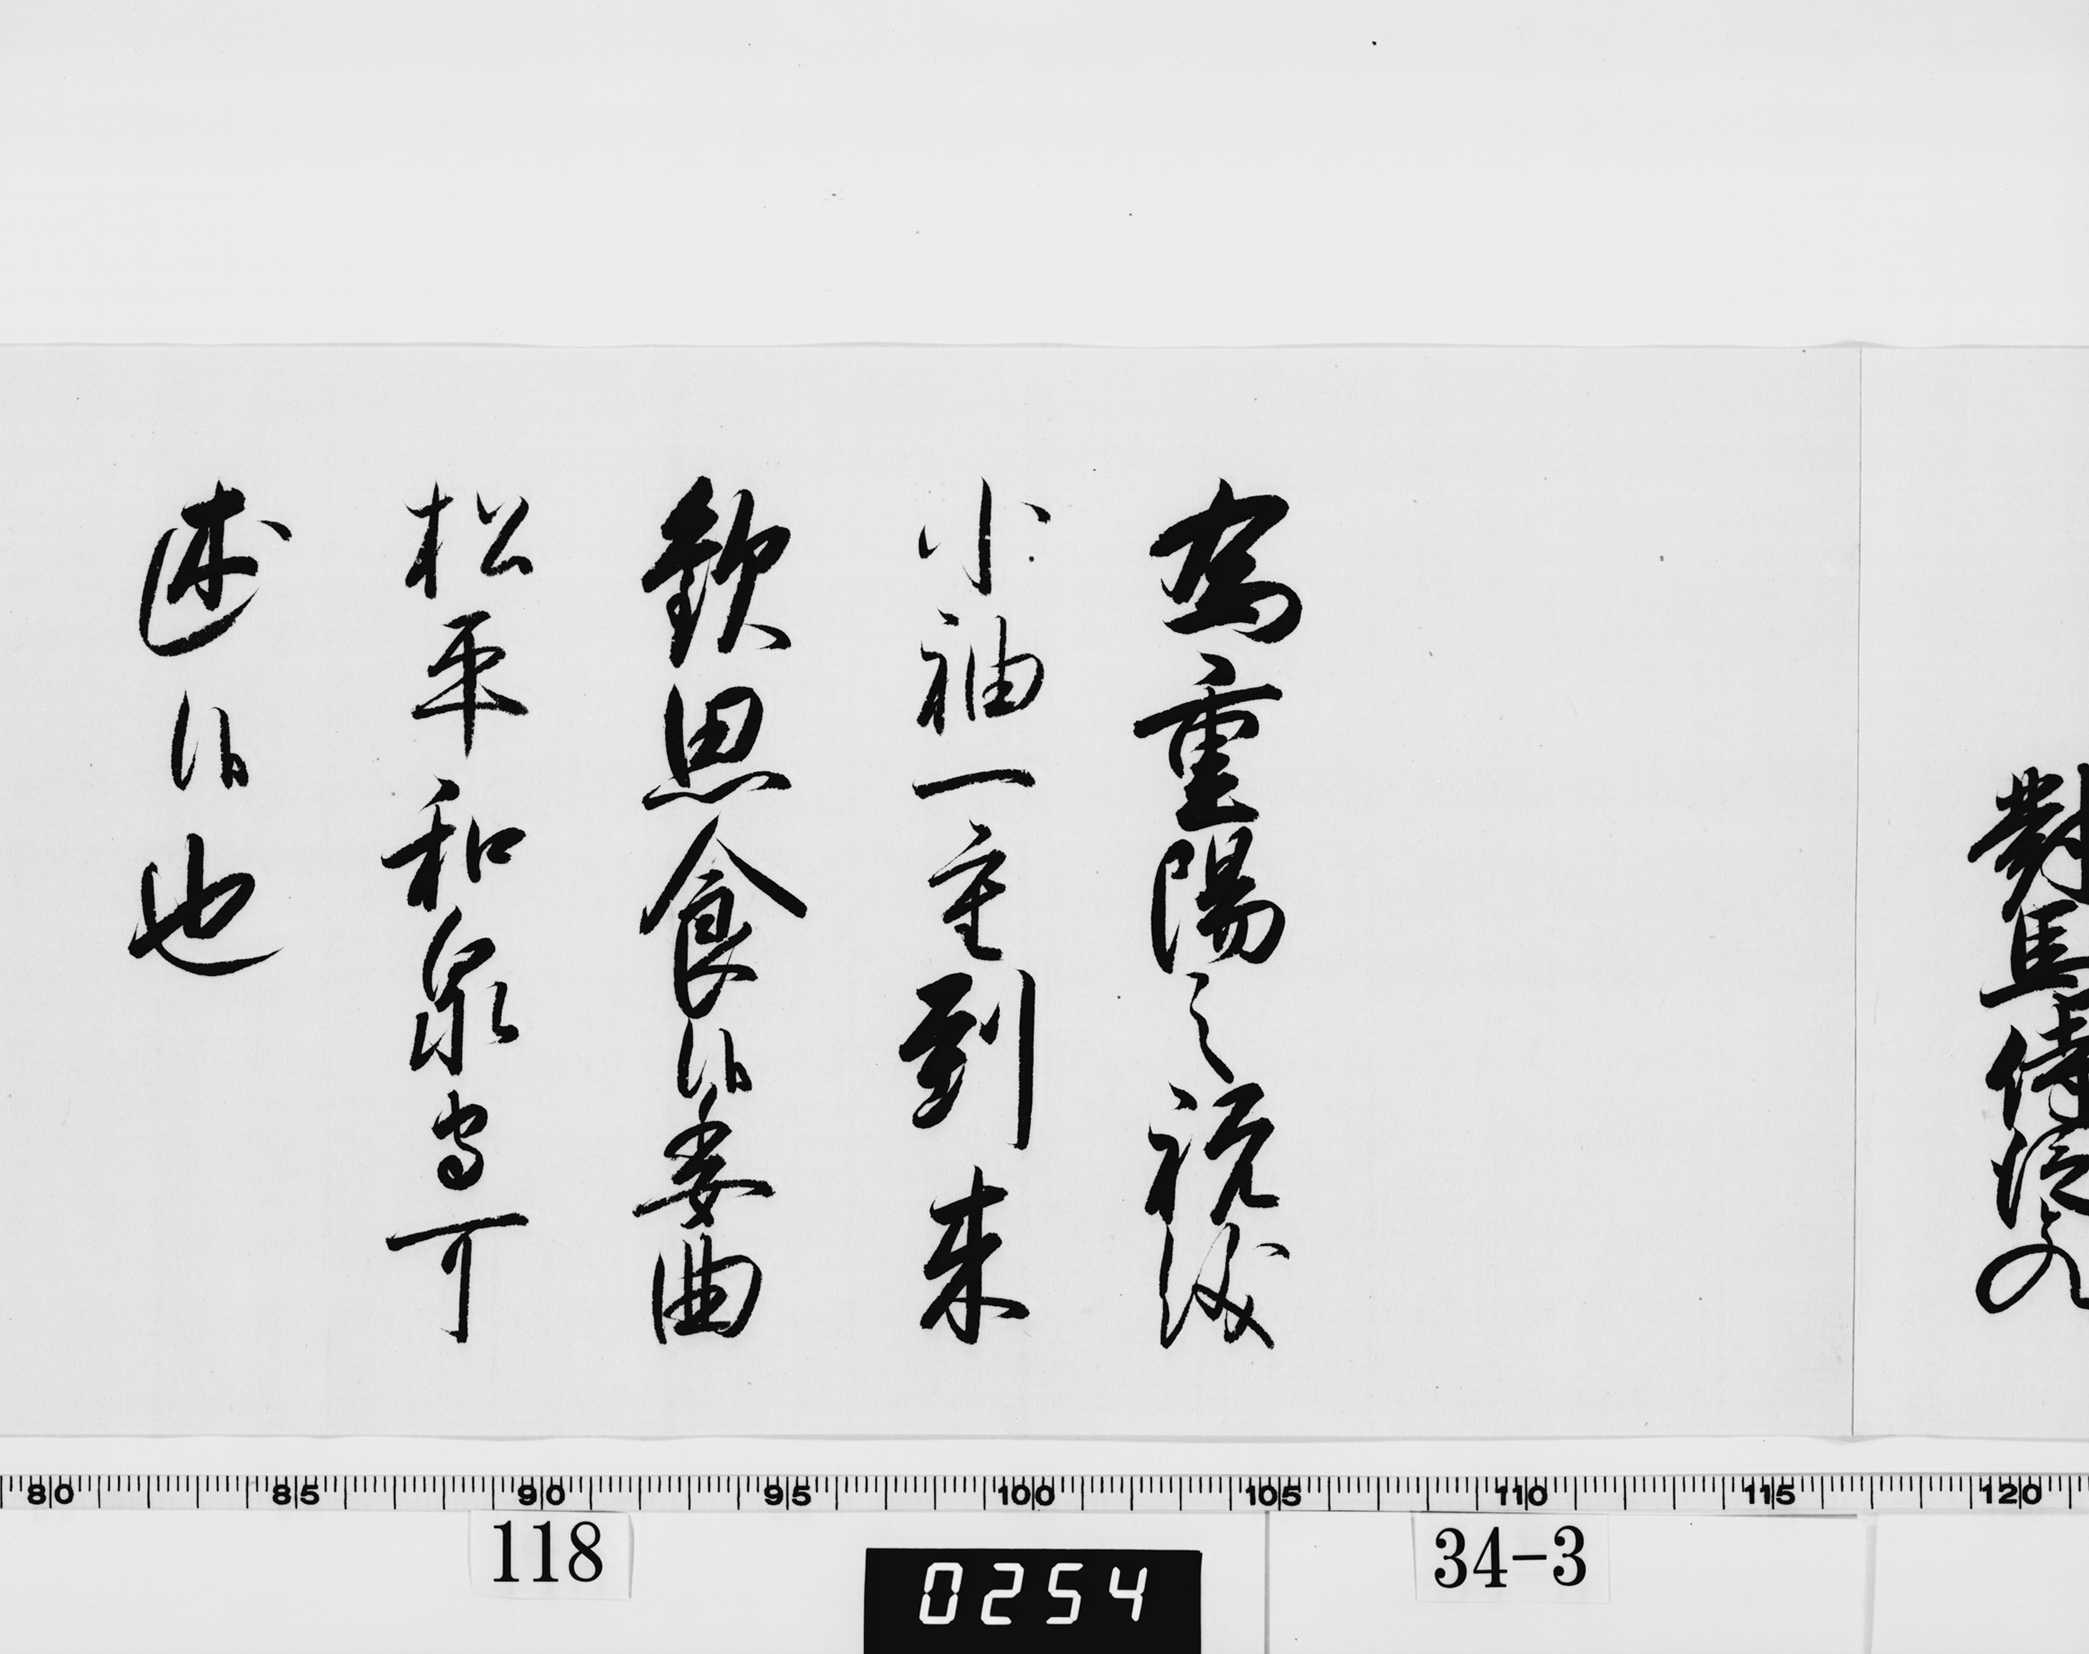 對馬侍従殿
為重陽之祝儀
小袖一重到来
歓思食候委曲
松平和泉守可
述候也
80 85 90 95 100 105 110 115 120
118
0254
34-3